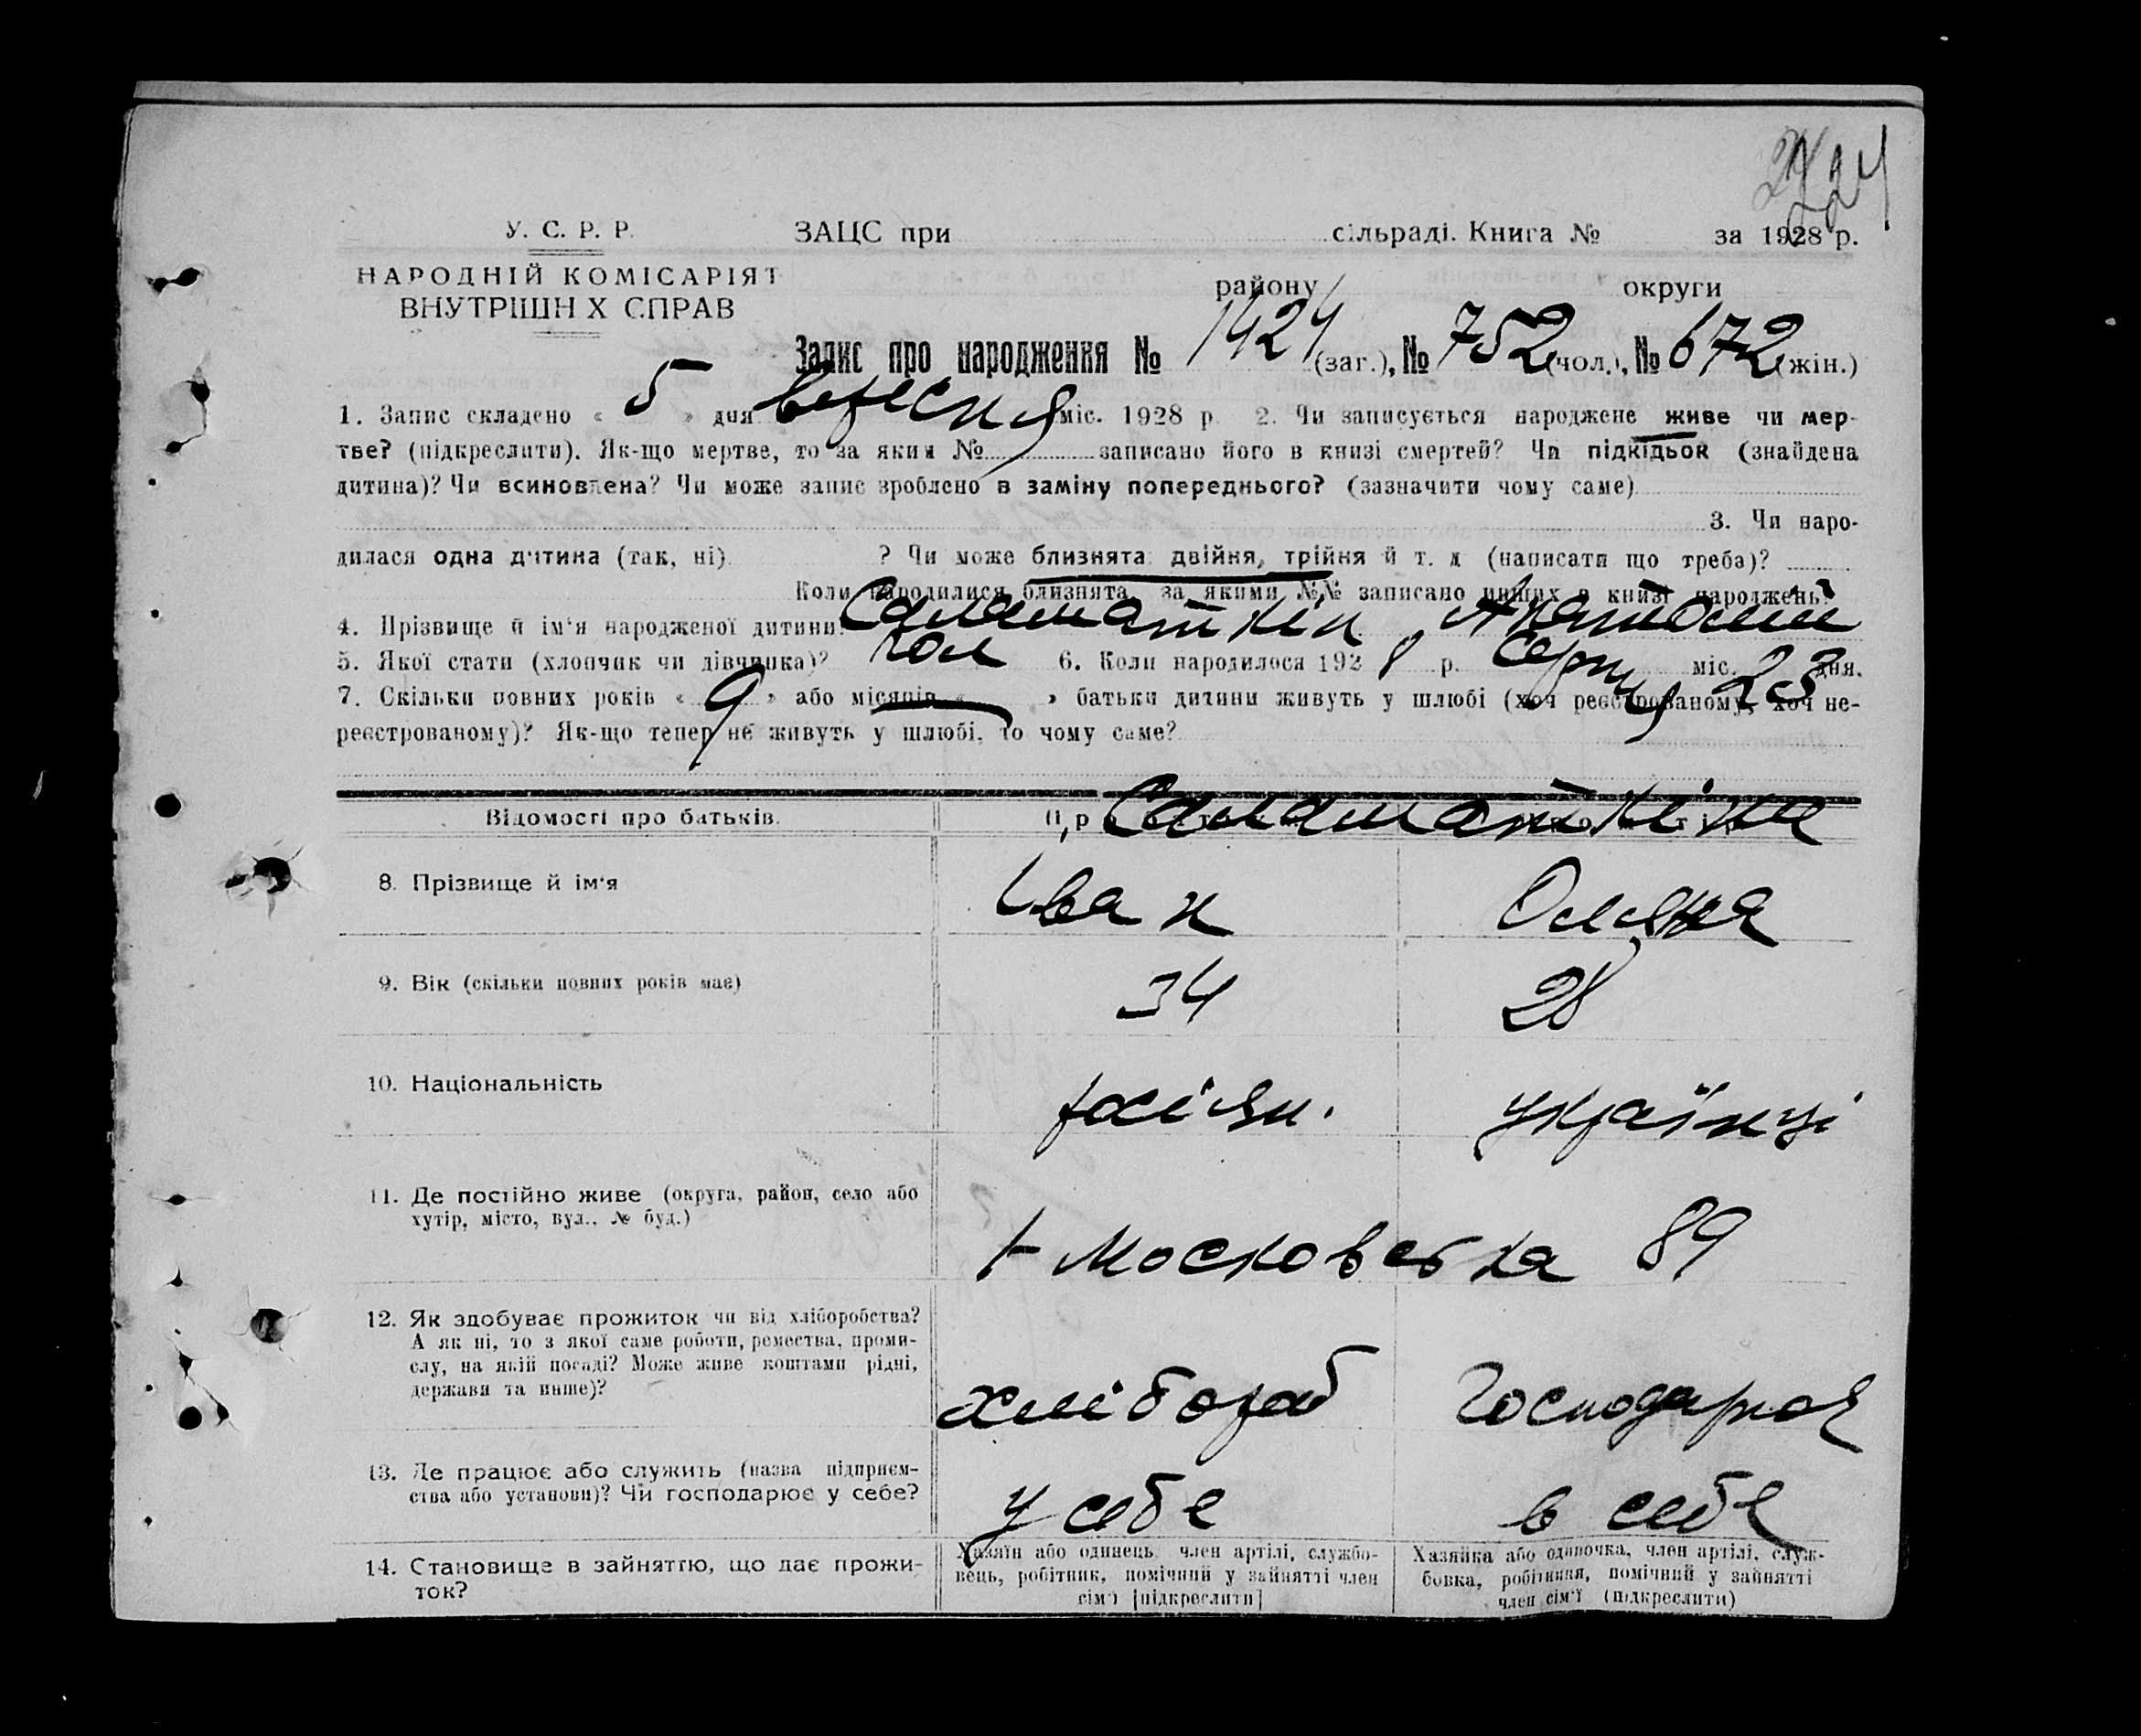 224
У. С. Р. Р. ЗАЦС при сільраді. Книга № за 1928 р.
НАРОДНІЙ КОМІСАРІЯТ району округи
ВНУТРІШН Х СПРАВ
Запис про народження № 1424 (заг.), № 752 (чол.), № 672 (жін.)
1. Запис складено « 5 » дня вересня міс. 1928 р. 2. Чи записується народжене живе чи мер-
тве? (підкреслити). Як-що мертве, то за яким № записано його в книзі смертей? Чи підкідьок (знайдена
дитина)? Чи всиновлена? Чи може запис зроблено в заміну попереднього? (зазначити чому саме)
3. Чи наро-
дилася одна дитина (так, ні) ? Чи може близнята: двійня, трійня й т. д (написати що треба)?
Коли народилися близнята, за якими №№ записано инших в книзі народжень?
4. Прізвище й ім'я народженої дитини: Саламаткін Анатолій
5. Якої стати (хлопчик чи дівчинка)? чол 6. Коли народилося 1928 р. серпня міс. 23 дня.
7. Скільки повних років « 9 » або місяців « » батьки дитини живуть у шлюбі (хоч реєстрованому, хоч не-
реєстрованому)? Як-що тепер не живуть у шлюбі, то чому саме?
Відомості про батьків. Пр Саламаткіни
8. Прізвище й ім'я Іван Оляна
9. Вік (скільки повних років має) 34 28
10. Національність росіян. українці
11. Де постійно живе (округа, район, село або
хутір, місто, вул., № буд.) 1-Московська 89
12. Як здобуває прожиток чи від хліборобства?
А як ні, то з якої саме роботи, ремества, проми-
слу, на якій посаді? Може живе коштами рідні,
держави та инше)? хлібороб господарюя
13. Де працює або служить (назва підприєм-
ства або установи)? Чи господарює у себе? у себе в себе
14. Становище в зайняттю, що дає прожи-
ток?
Хазяїн або одинець, член артілі, службо-
вець, робітник, помічний у зайнятті член
сім'ї [підкреслити]
Хазяйка або одиночка, член артілі, служ-
бовка, робітниця, помічний у зайнятті
член сім'ї (підкреслити)